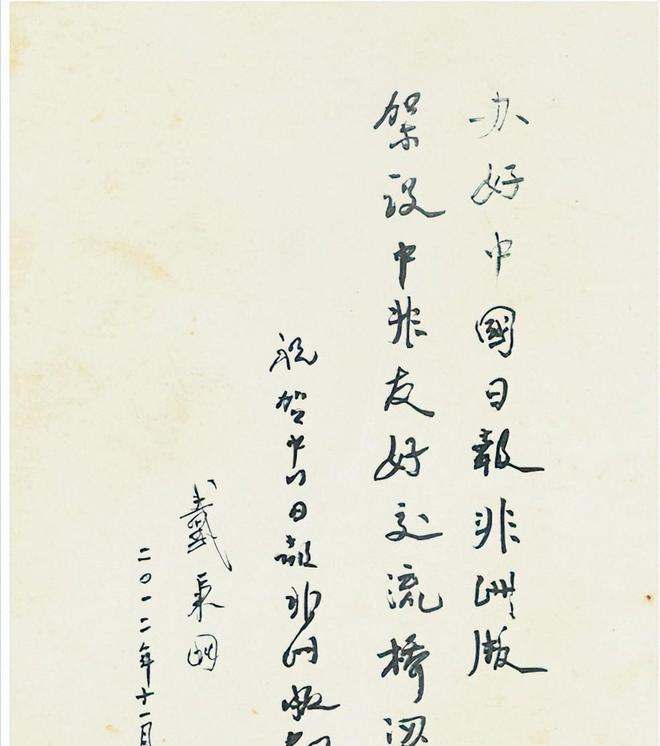 办好中國日報非洲版
架设中非友好交流橋
祝贺中国日報非洲版
戴秉國
二〇一二年十一月